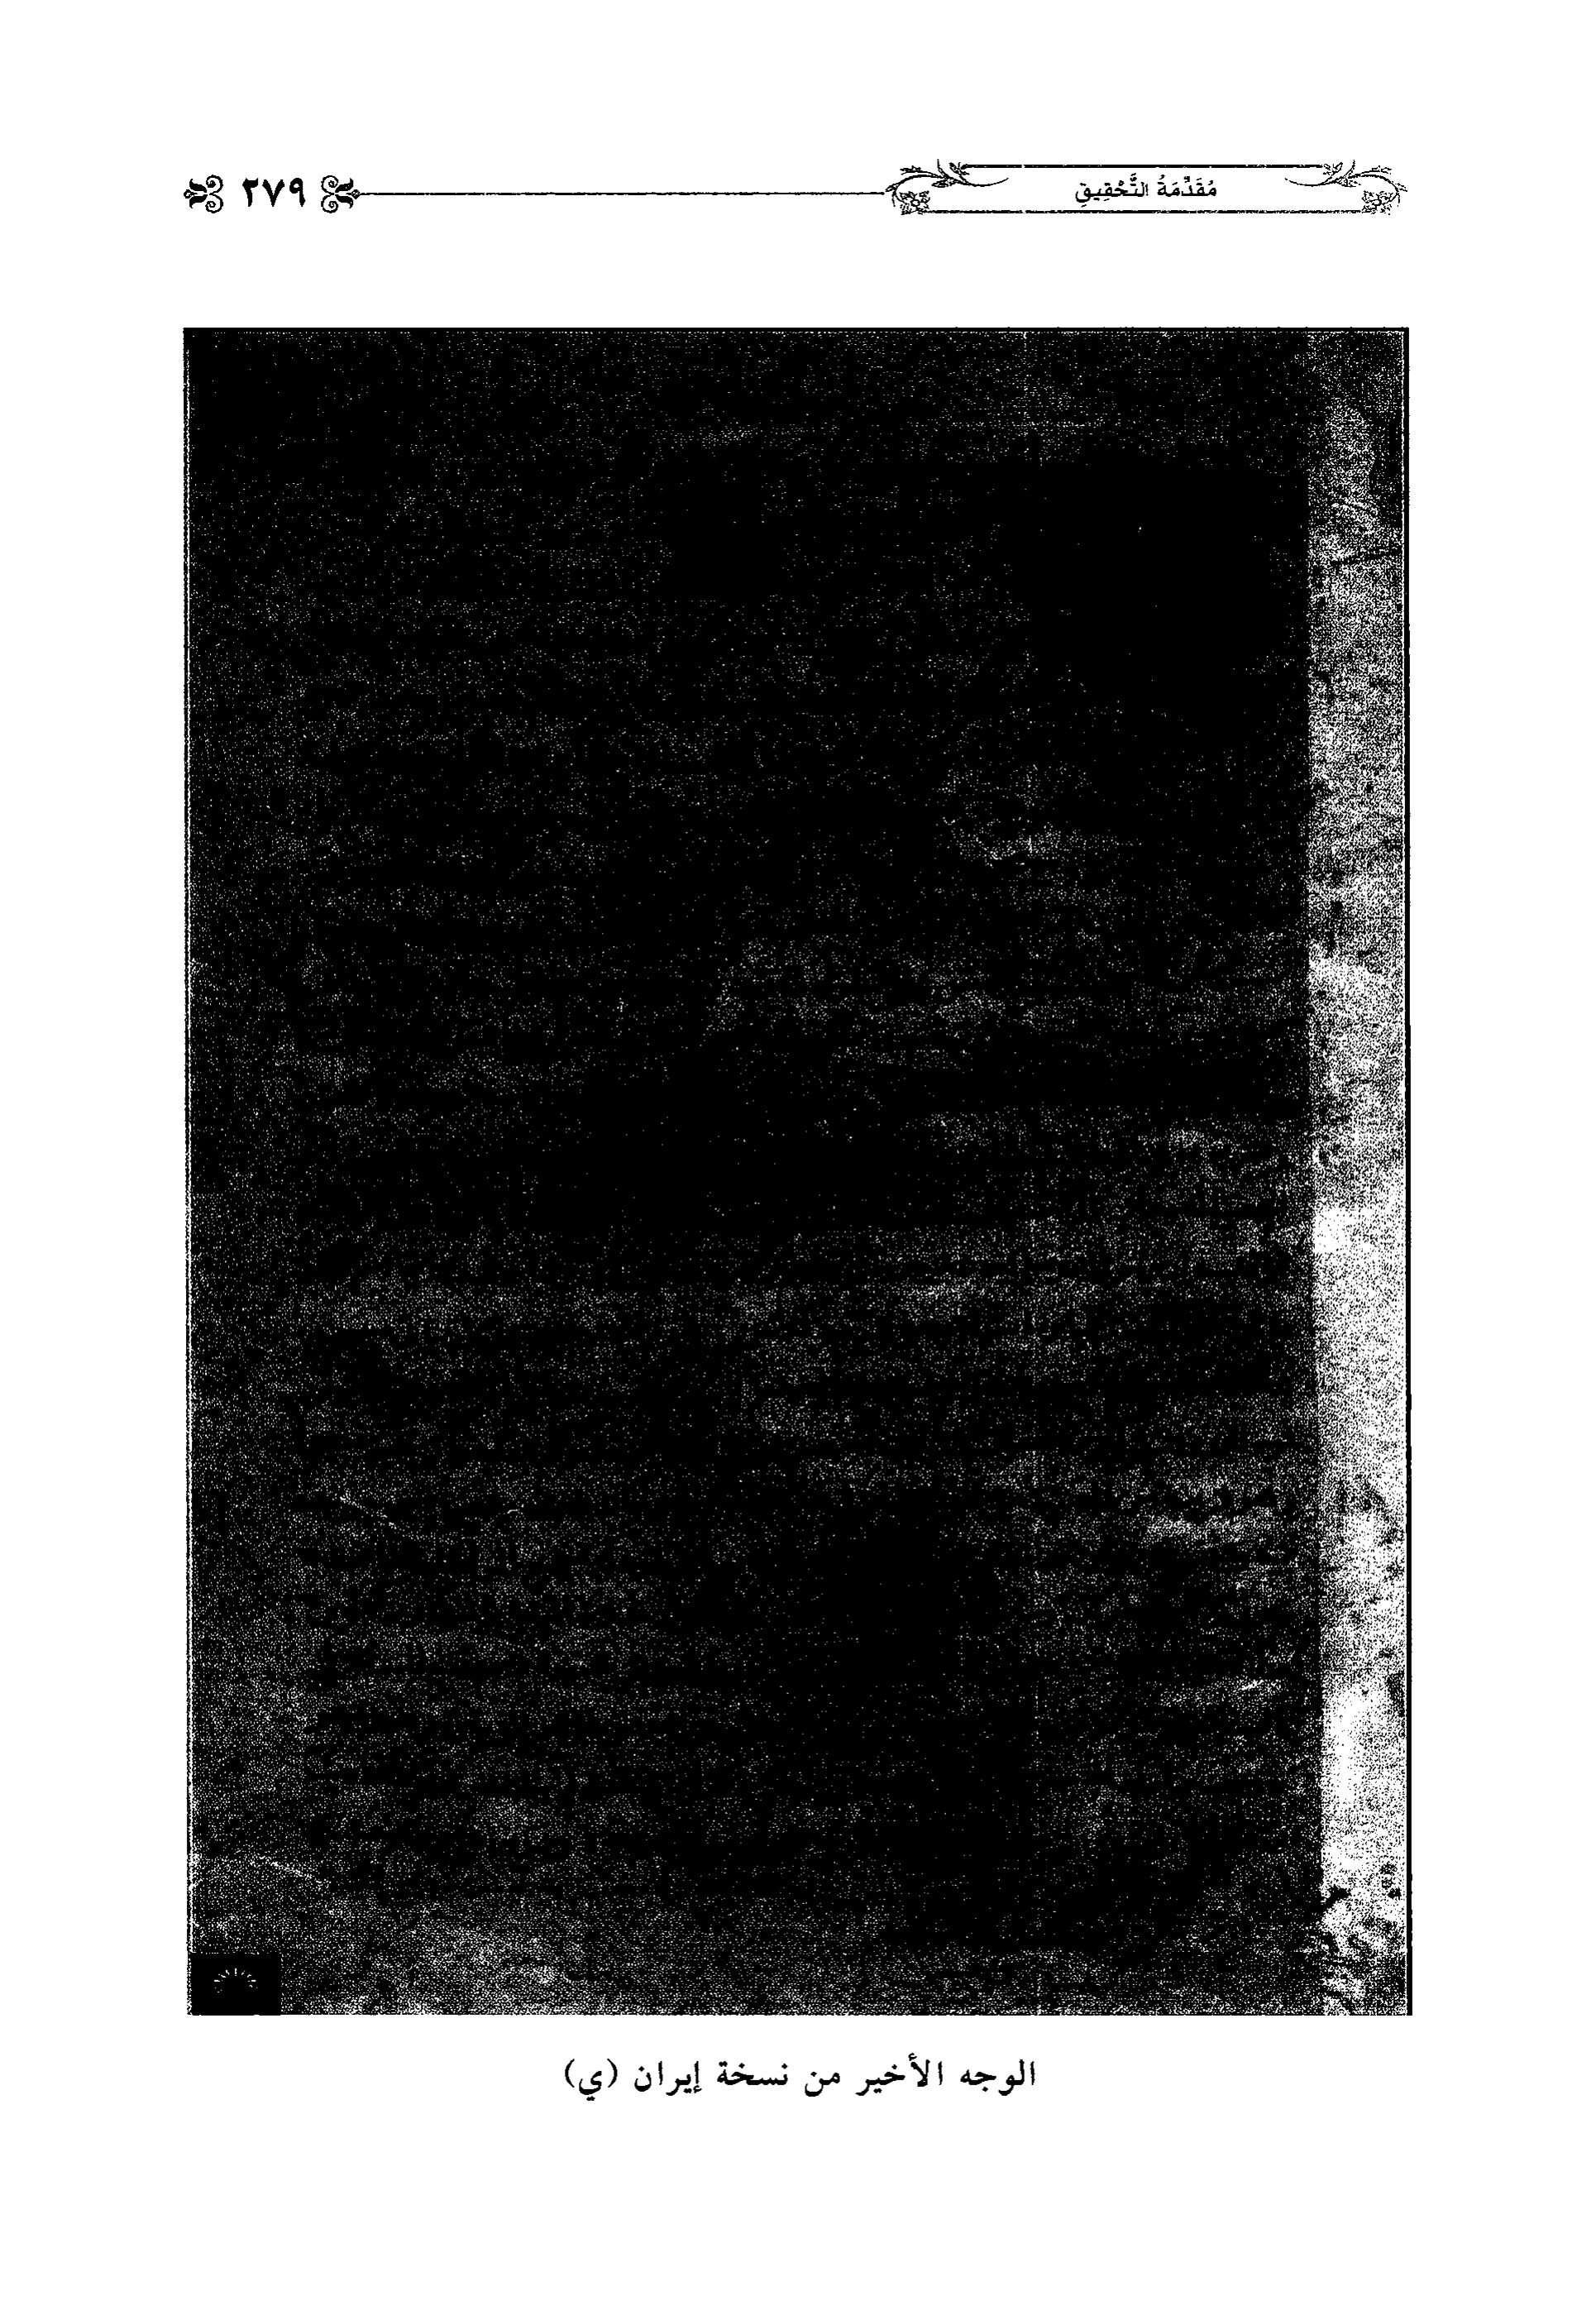 مُقَدِّمَةُ التَّحْقِيقِ
٢٧٩
الوجه الأخير من نسخة إيران (ي)